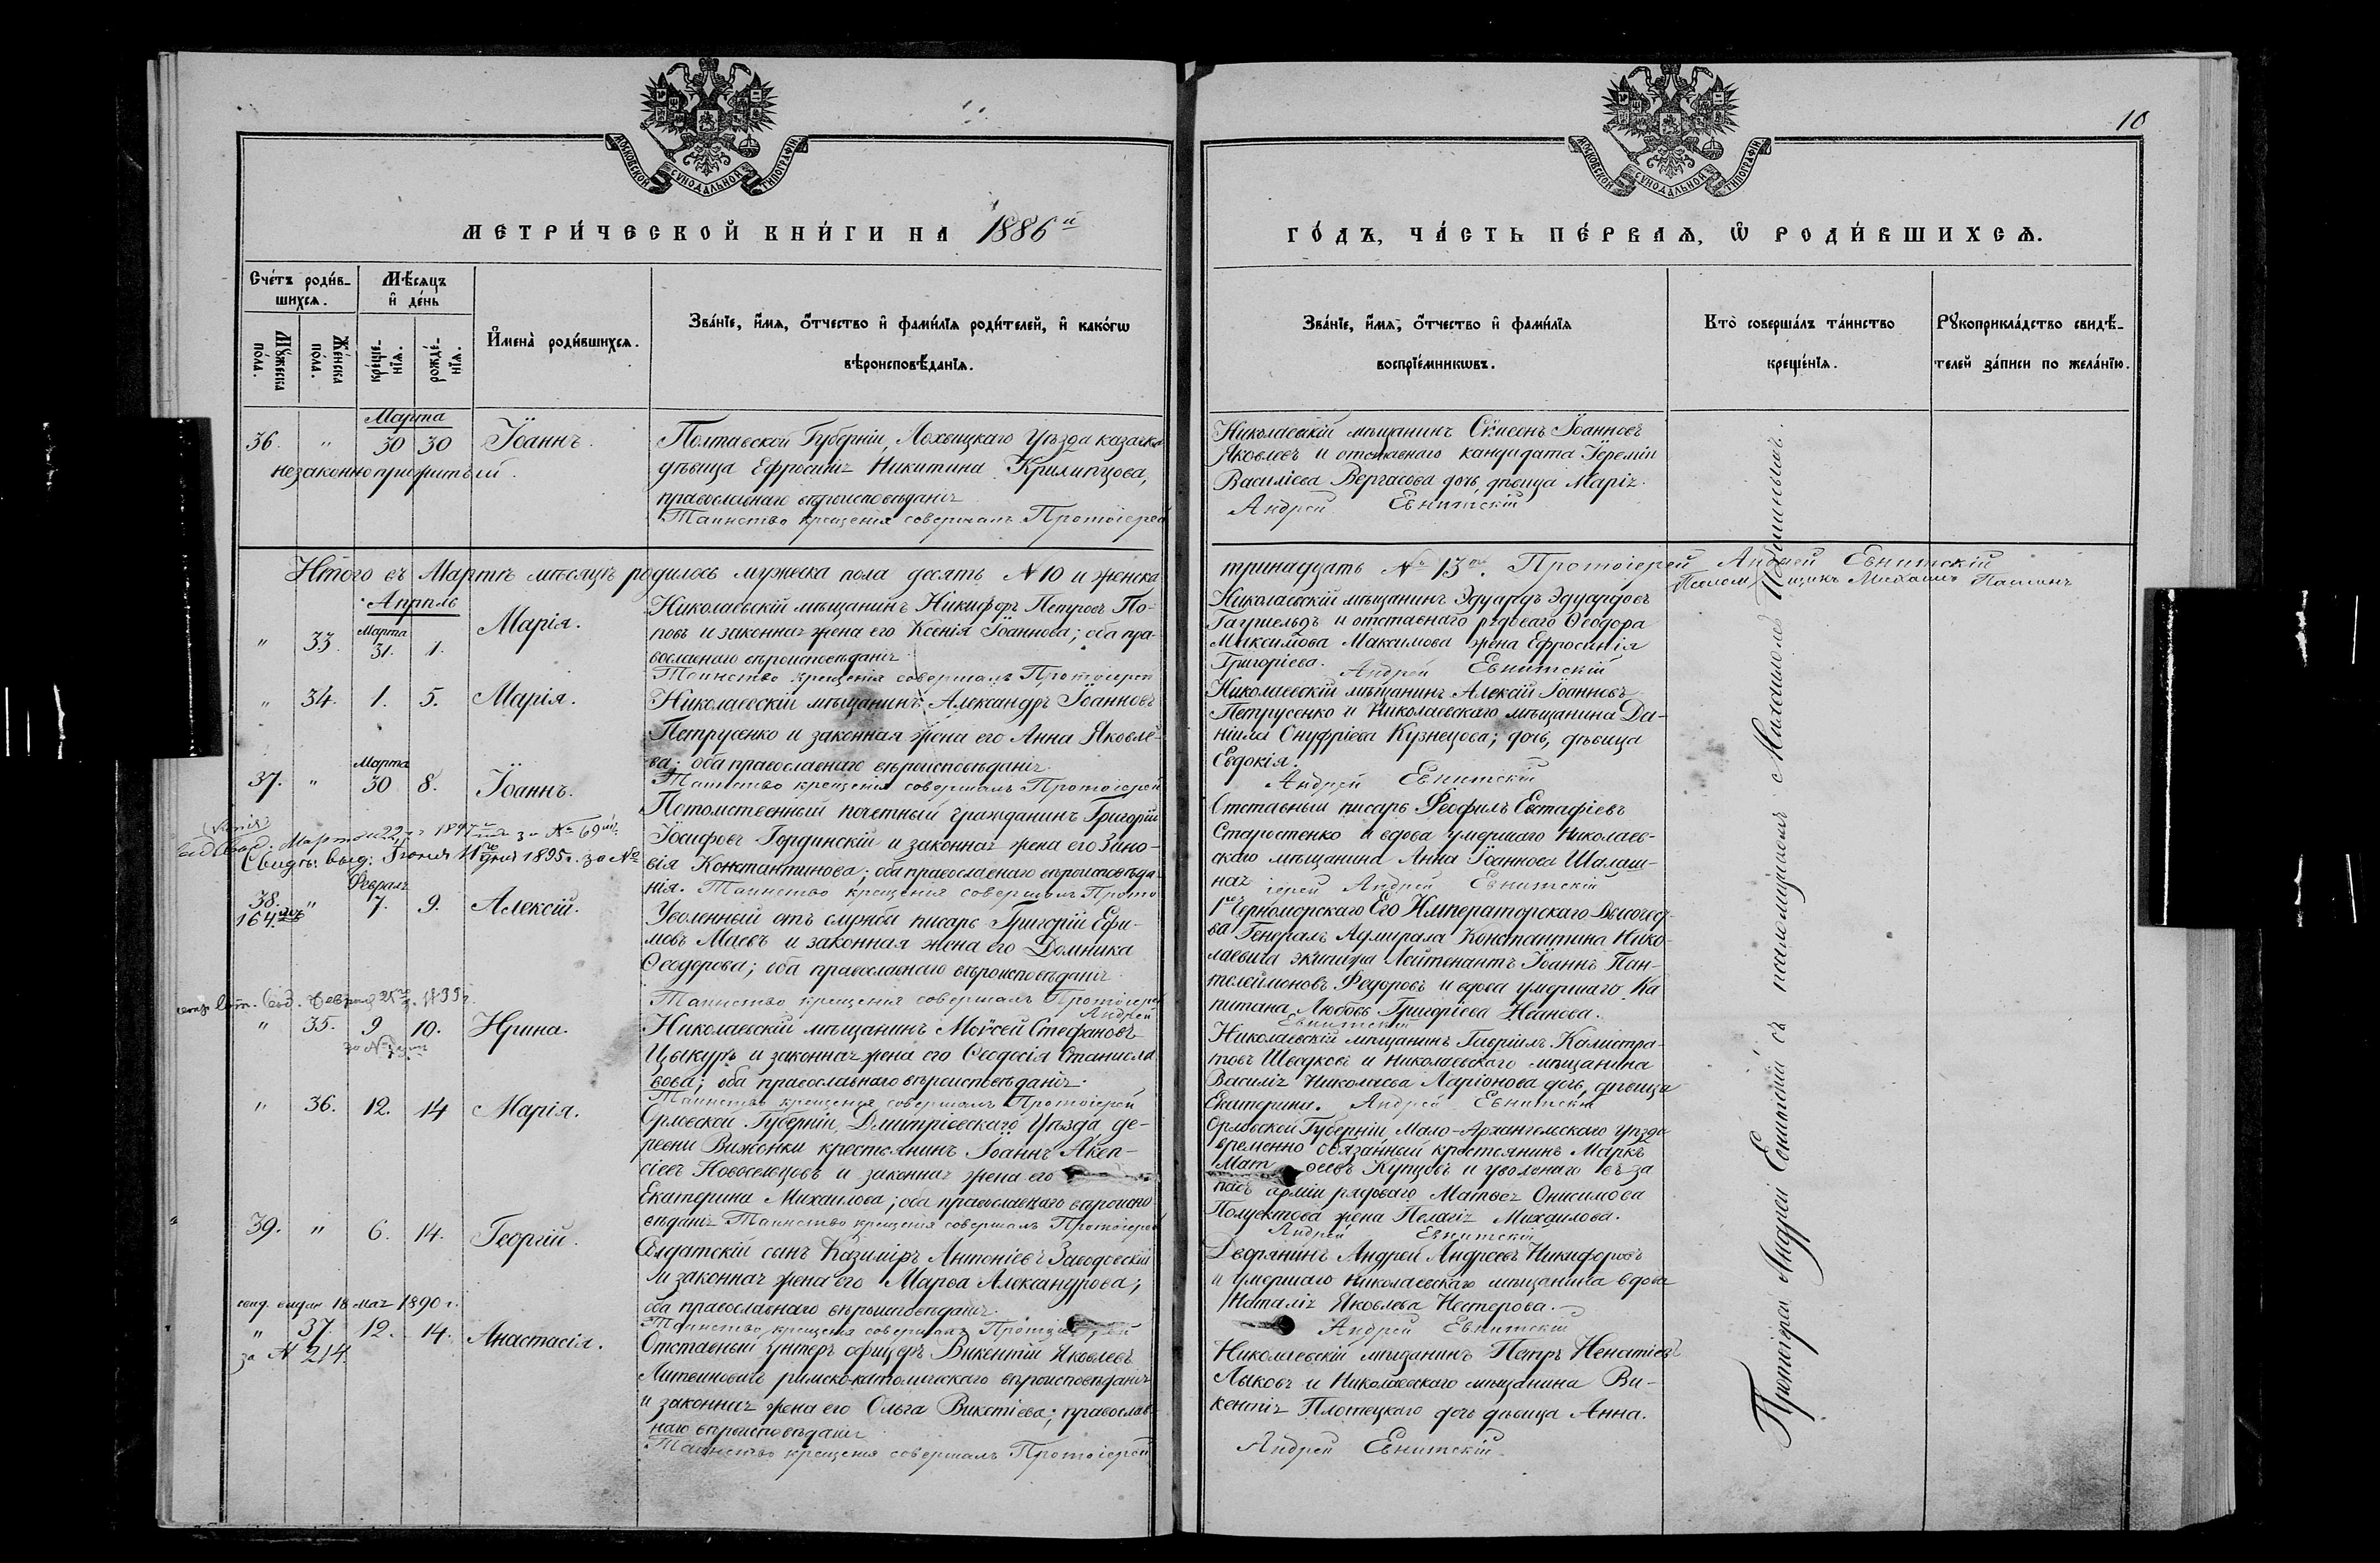 10
МОСКОВСКОЙ СѴНОДАЛЬНОЙ ТИПОГРАФІИ
МОСКОВСКОЙ СѴНОДАЛЬНОЙ ТИПОГРАФІИ
МЕТРИ́ЧЕСКОЙ КНИ́ГИ НА 1886й
ГО́ДЪ, ЧА́СТЬ ПЕ́РВАѦ, Ѽ РОДИ́ВШИХСѦ.
Сче́тъ роди́в-
шихсѧ.
Мѣ́сяцъ
и҆ де́нь
Мꙋ́жеска
по́ла.
Же́нска
по́ла.
кре́ще-
нїѧ.
рожде́-
нїѧ.
И҆мена̀ роди́вшихсѧ.
Зва́нїе, и҆́мѧ, ѻ҆́тчество и҆ фами́лїѧ роди́телей, и҆ како́гѡ
вѣроисповѣ́данїѧ.
Зва́нїе, и҆́мѧ, ѻ҆́тчество и҆ фами́лїѧ
воспрїе́мникѡвъ.
Кто̀ соверша́лъ та́инство
креще́нїѧ.
Рꙋкоприкла́дство свидѣ́-
телей за́писи по жела́нїю.
Марта
36. " 30 30 Іоаннъ.
незаконноприжитый.
Полтавской Губерніи, Лохвицкаго Уѣзда казачка
дѣвица Ефросинія Никитина Крилипцова,
православнаго вѣроисповѣданія
Таинство крещенія совершалъ Протоіерей
Николаевскій мѣщанинъ Сѵмеонъ Іоанновъ
Яковлевъ и отставнаго кандидата Іереміи
Василіева Вергасова дочь, дѣвица Марія.
Андрей Евнитскій
Итого въ Мартѣ мѣсяцѣ родилось мужеска пола десять №10 и женска
тринадцать №13. Протоіерей Андрей Евнитскій
Псаломщикъ Михаилъ
Апрѣль
" 33. Марта 31. 1. Марія.
Николаевскій мѣщанинъ Никифоръ Петровъ По-
повъ и законная жена его Ксенія Іоаннова; оба пра-
вославнаго вѣроисповѣданія
Таинство крещенія совершалъ Протоіерей
Николаевскій мѣщанинъ Эдуардъ Эдуардовъ
и отставнаго рядоваго Ѳеодора
Максимова Максимова жена Ефросинія
Григоріева. Андрей Евнитскій
" 34. 1. 5. Марія.
Николаевскій мѣщанинъ Александръ Іоанновъ
Петрусенко и законная жена его Анна Яковле-
ва; оба православнаго вѣроисповѣданія.
Таинство крещенія совершалъ Протоіерей
Николаевскій мѣщанинъ Алексій Іоанновъ
Петрусенко и Николаевскаго мѣщанина Да-
ніила Онуфріева Кузнецова; дочь, дѣвица
Евдокія.
Андрей Евнитскій
37. " Марта 30 8. Іоаннъ.
Потомственный почетный гражданинъ Григорій
Іосифовъ Гординскій и законная жена его Зино-
вія Константинова; оба православнаго вѣроисповѣда
нія. Таинство крещенія совершалъ Прото
Отставный писарь Ѳеофилъ Евстафіевъ
Старостенко и вдова умершаго Николаев-
скаго мѣщанина Анна Іоаннова Шалаш-
ная
іерей Андрей Евнитскій
Марта 22 1897 за № 69
Свидѣт. выд. Іюня 11го дня 1895 г. за №
164.
38. " Февраля 7. 9. Алексій.
Уволенный отъ службы писарь Григорій Ефи-
мовъ Маевъ и законная жена его Домника
Ѳеодорова; оба православнаго вѣроисповѣданія.
Таинство крещенія совершалъ Протоіерей
Андрей
Евнитскій
1го Черноморскаго Его Императорскаго Высочес-
ва Генералъ Адмирала Константина Нико-
лаевича экипажа Лейтенантъ Іоаннъ Пан-
телеймоновъ Федоровъ и вдова умершаго Ка
питана Любовь Григоріева Иванова.
выд. Февраля 25 1899 г.
за №
" 35. 9 10. Ирина.
Николаевскій мѣщанинъ Моѵсей Стефановъ
Цыкуръ и законная жена его Ѳеодосія Станисла
вова; оба православнаго вѣроисповѣданія.
Таинство крещенія совершалъ Протоіерей
Николаевскій мѣщанинъ Гавріилъ Калистра-
товъ Шведковъ и Николаевскаго мѣщанина
Василія Николаева Ларіонова дочь, дѣвица
Екатерина. Андрей Евнитскій
" 36. 12. 14 Марія.
Орловской Губерніи, Дмитріевскаго Уѣзда де-
ревни Вижонки крестьянинъ Іоаннъ Алек-
сіевъ Новосельцовъ и законная жена его
Екатерина Михаилова; оба православнаго вѣроиспо
вѣданія Таинство крещенія совершалъ Протоіерей
Орловской Губерніи Мало-Архангельскаго уѣзда
временно обязанный крестьянинъ Маркъ
Матѳеевъ Купцовъ и уволенаго въ за
пасъ арміи рядоваго Матвея Онисимова
Полуектова жена Пелагія Михаилова.
Андрей Евнитскій
39. " 6. 14. Георгій.
Солдатскій сынъ Казиміръ Антоніевъ Заводовскій
и законная жена его Марѳа Александрова;
оба православнаго вѣроисповѣданія.
Таинство крещенія совершалъ Протоіерей
Дворянинъ Андрей Андреевъ Никифоровъ
и умершаго Николаевскаго мѣщанина вдова
Наталія Яковлева Нестерова.
Андрей Евнитскій
свид. выдан 18 мая 1890 г.
за № 214.
" 37. 12. 14. Анастасія.
Отставный унтеръ офицеръ Викентій Яковлевъ
Литвиновичъ римско-католическаго вѣроисповѣданія
и законная жена его Ольга Викентіева; православ-
наго вѣроисповѣданія
Таинство крещенія совершалъ Протоіерей
Николаевскій мѣщанинъ Петръ Игнатіевъ
Лыковъ и Николаевскаго мѣщанина Ви-
кентія Плотецкаго дочь дѣвица Анна.
Андрей Евнитскій
Протоіерей Андрей Евнитскій съ псаломщикомъ Михаиломъ